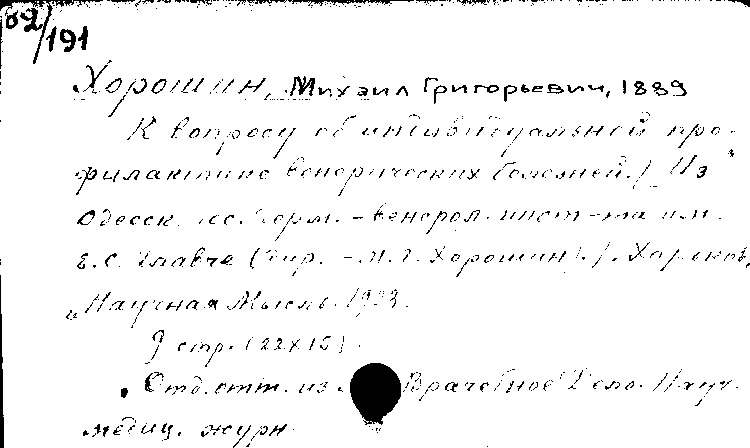 62/191
Хорошин, Михаил Григорьевич, 1889
К вопросу об индивидуальной про-
филактике венерических болезней. / Из
Одесск. дерм. - венерол. инст-та им.
Е. С. Главче (Дир. - М. Г. Хорошин) /. Харьков,
"Научная Мысль.
9 стр. (22х15).
Отд. отт. из Врачебное Дело. Науч.
медиц. журн